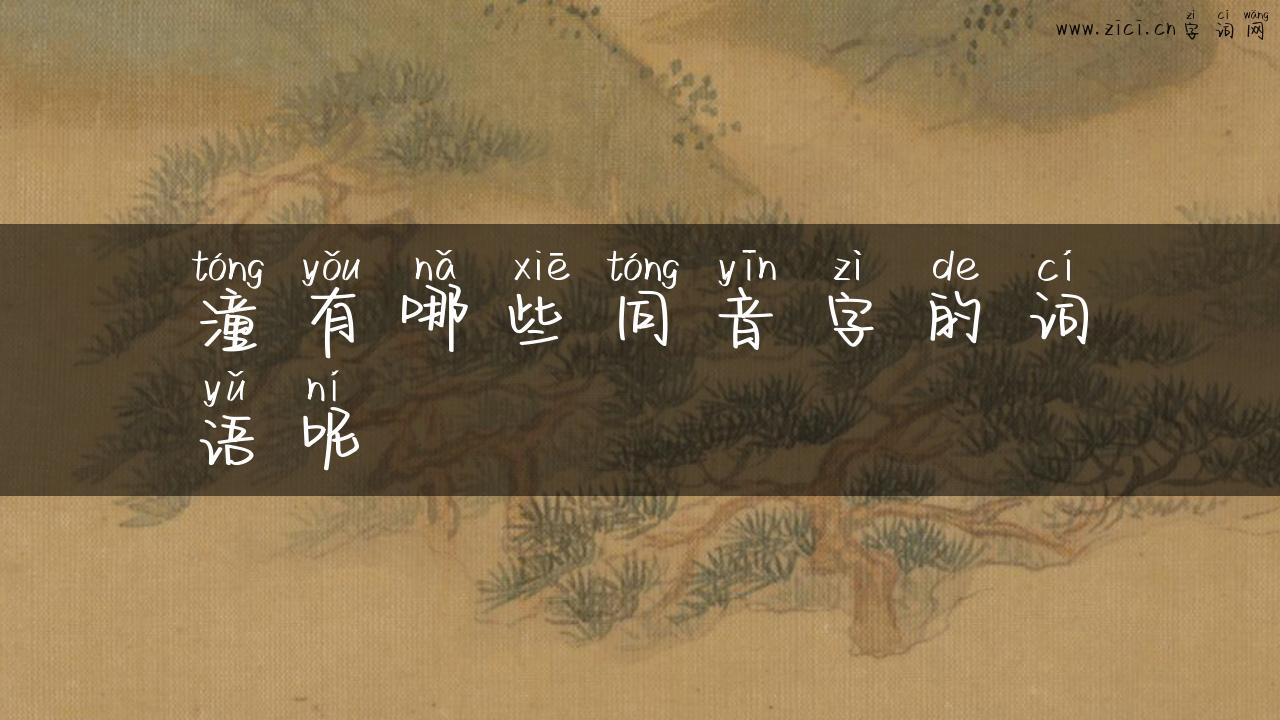 zì cí wǎng
www.zici.cn 字 词 网
tóng yǒu nǎ xiē tóng yīn zì de cí
潼 有 哪 些 同 音 字 的 词
yǔ ní
语 呢